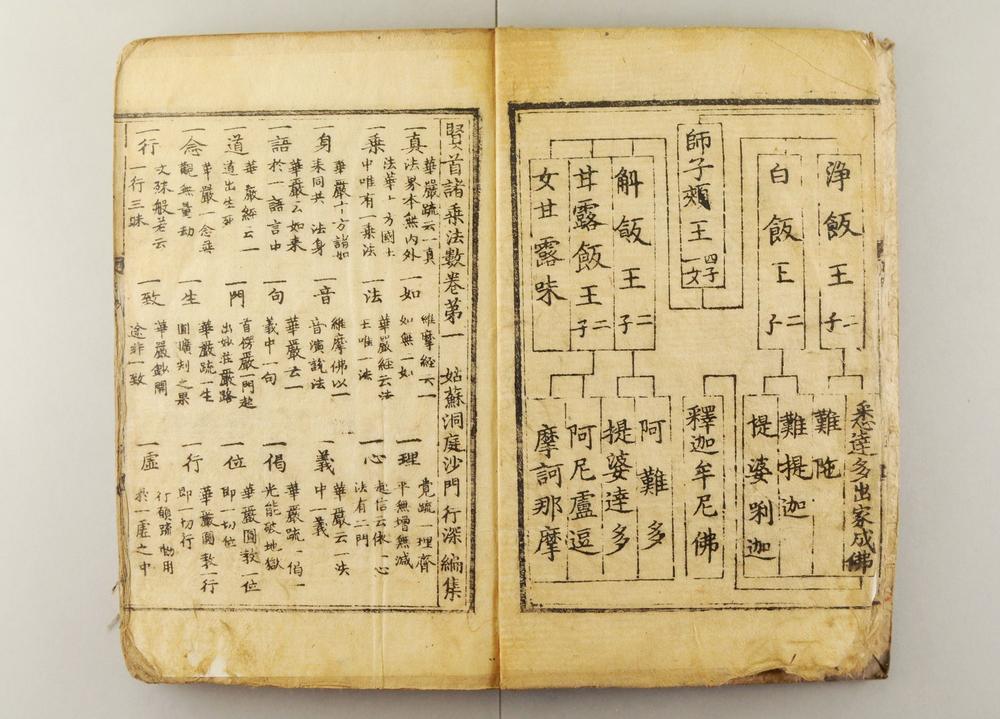 浄飯王二子
白飯王二子
師子頰王四子一女
斛飯王二子
甘露飯王二子
女甘露味
悉達多出家成佛
難陁
難提迦
提婆唎迦
釋迦牟尼佛
阿難多
提婆達多
阿尼盧逗
摩訶那摩
賢首諸乗法數卷苐一 姑蘇洞庭沙門行深編集
一真 華嚴疏云一真
法界本無内外
一如 維摩經云一
如無一如
一理 覺疏一理齊
平無增無減
一乗 法華十方國土
中唯有一乗法
一法 華嚴經云法
王唯一法
一心 起信云依一心
法有二門
一身 華嚴十方諸如
来同共一法身
一音 維摩佛以一
音演說法
一義 華嚴云一法
中一義
一語 華嚴云如来
於一語言中
一句 華嚴云一
義中一句
一偈 華嚴疏一偈
光能破地獄
一道 華嚴經云一
道出生死
一門 首楞嚴一門超
出妙莊嚴路
一位 華嚴圓教一位
即一切位
一念 華嚴一念
觀無量劫
一生 華嚴疏一生
圓曠刹之果
一行 華嚴圓教一行
即一切行
一行 文殊般若云
一行三昧
一致 華嚴鈔開
途非一致
一虛 行願疏物用
於一虛之中